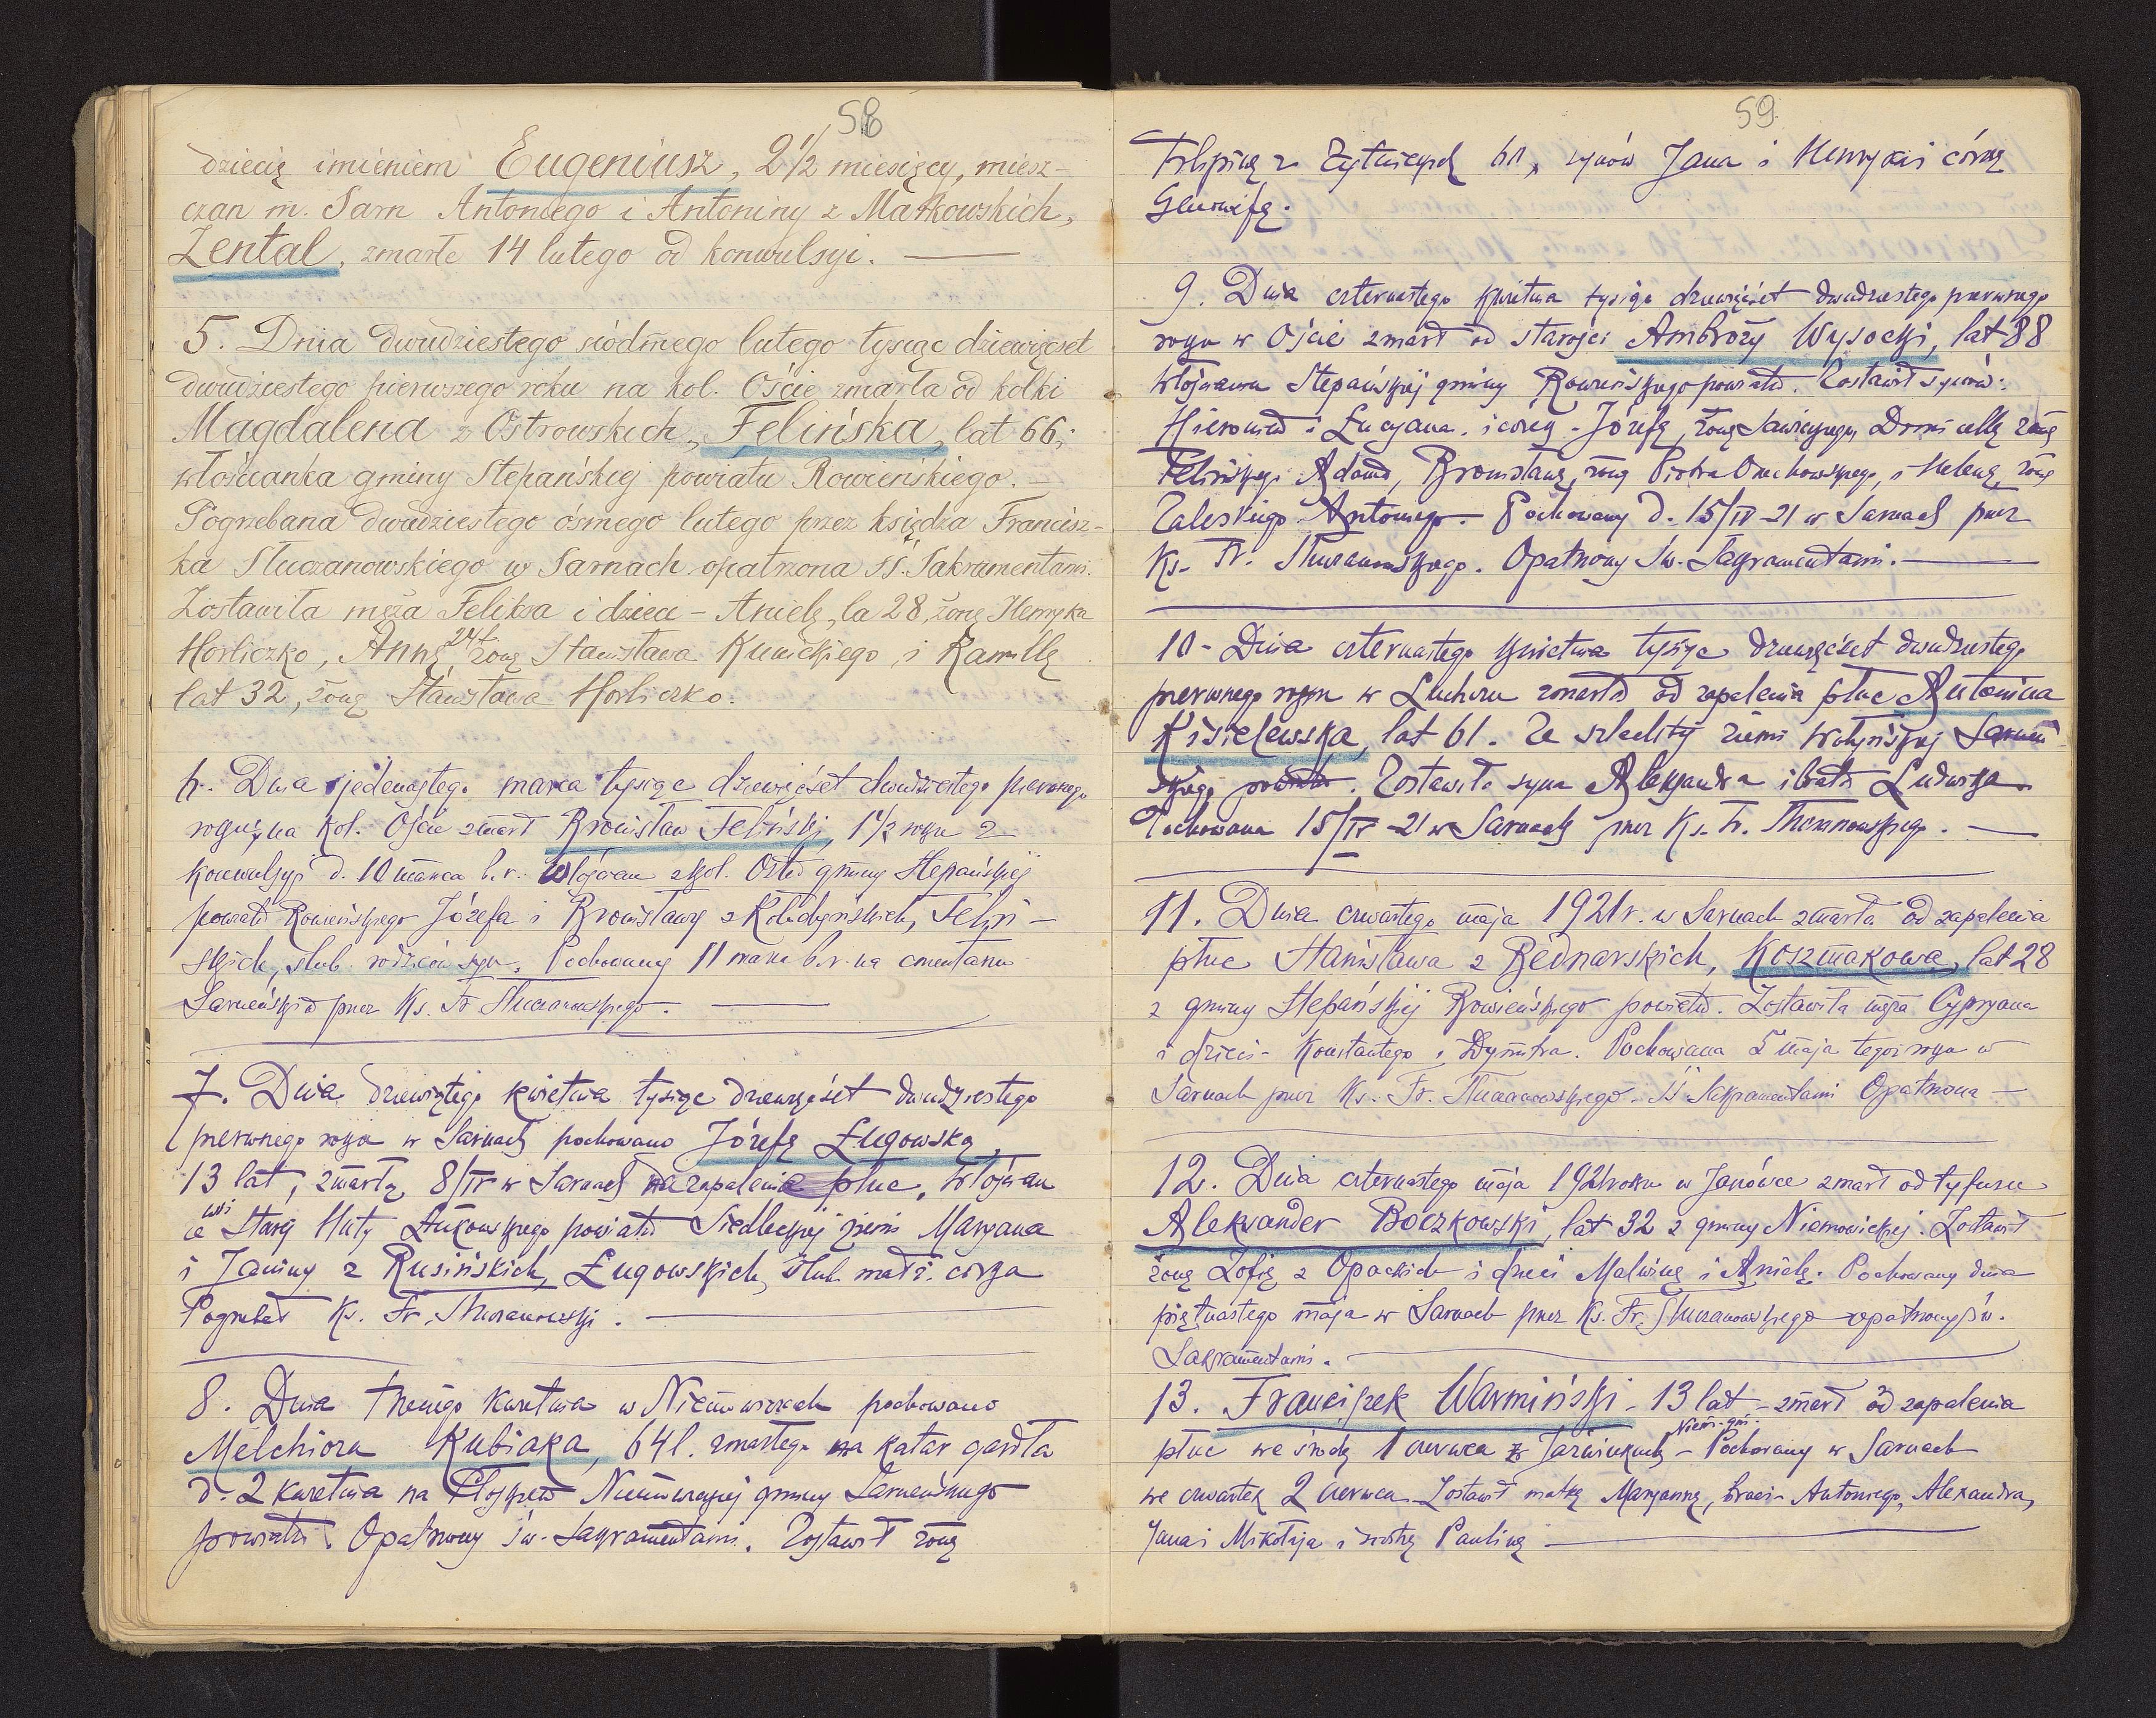 58
dziecię imieniem Eugeniusz, 2 1/2 miesięcy, miesz-
czan m. Sarn Antoniego i Antoniny z Małkowskich,
Zental, zmarłe 14 lutego od konwulsyi. —
5. Dnia dwudziestego siódmego lutego tysiąc dziewięcset
dwudziestego pierwszego roku na kol. Oście zmarła od kolki
Magdalena z Ostrowskich, Felińska, lat 66,
włościanka gminy Stepańskiej powiatu Rowieńskiego. —
Pogrzebana dwudziestego ósmego lutego przez księdza Francisz-
ka Słuczanowskiego w Sarnach opatrzona ŚŚ. Sakramentami.
Zostawiła męża Feliksa i dzieci - Anielę, la 28, żonę Henryka
Horliczko, Annę, 24 l. żonę Stanisława Kunickiego, i Kamillę
lat 32, żonę Stanisława Horliczko.
6. Dnia jedenastego marca tysiąc dziewięćset dwudziestego pierwszego
roku, na Kol. Oście zmarł Bronisław Feliński, 1 1/2 roku z
konwulsyi d. 10 marca b.r. włościan z kol. gminy Stepańskiej
powiatu Rowieńskiego Józefa i Bronisławy z Feliń-
skich, ślub. rodziców syn. Pochowany 11 marca b.r. na cmentarzu
Sarneńskim przez Ks. Fr Słuczanowskiego. —
7. Dnia dziewiątego kwietnia tysiąc dziewięćset dwudziestego
pierwszego roku w Sarnach pochowano Józefę Ługowską,
13 lat, zmarłą 8/IV w Sarnach na zapalenie płuc, włościan
wsi
Starej Huty Łukowskiego powiatu Siedleckiej ziemi Maryana
i Janiny z Rusińskich, Ługowskich, ślub. małż. córka
Pogrzebał Ks. Fr. Słuczanowski. —
8. Dnia trzeciego kwietnia w Niemowiczach pochowano
Melchiora Kubiaka, 64 l. zmarłego na katar gardła
d. 2 kwietnia na Niemowickiej gminy Sarneńskiego
powiatu. Opatrzony św. Sakramentami. Zostawił żonę
59
Filipinę z 61, synów Jana i Henryka i córkę
Genowefę.
9. Dnia czternastego kwietnia tysiąc dziewięćset dwudziestego pierwszego
roku w Oście zmarł od starości Ambroży Wysocki, lat 88
włościanin Stepańskiej gminy Rowieńskiego powiatu. Zostawił synów:
Hieronima i Łucyana. i córki - Józefę, żonę Sawickiego, Domicellę żonę
Felińskiego Adama, Bronisławę, żonę Piotra Orzechowskiego, i Helenę, żonę
Zaleskiego Antoniego. Pochowany d. 15/IV-21 w Sarnach przez
Ks. Fr. Słuczanowskiego. Opatrzony Św. Sakramentami. —
10 - Dnia czternastego kwietnia tysiąc dziewięćset dwudziestego
pierwszego roku w zmarła od zapalenia płuc Antonina
Kisielewska, lat 61. Ze szlachty ziemi Wołyńskiej Sarneń
skiego powiatu. Zostawiła syna Aleksandra i brata Ludwika.
Pochowana 15/IV-21 w Sarnach przez Ks. Fr. Słuczanowskiego. —
11. Dnia czwartego maja 1921 r. w Sarnach zmarła od zapalenia
płuc Stanisława z Bednarskich, Koszmakowa, lat 28
z gminy Stepańskiej Rowieńskiego powiatu. Zostawiła męża Cypryana
i dzieci - Konstantego i Dymitra. Pochowana 5 maja tegoż roku w
Sarnach przez Ks. Fr. Słuczanowskiego. ŚŚ Sakramentami Opatrzona —
12. Dnia czternastego maja 1921 roku w Janówce zmarł od tyfusu
Aleksander Boczkowski, lat 32 z gminy Niemowickiej. Zostawił
żonę Zofię z Opackich i dzieci Malwinę i Anielę. Pochowany dnia
piętnastego maja w Sarnach przez Ks. Fr. Słuczanowskiego opatrzony św.
Sakramentami. —
13. Franciszek Warmiński - 13 lat - zmarł od zapalenia
Niem. gm.
płuc we środę 1 czerwca w - Pochowany w Sarnach
we czwartek 2 czerwca. Zostawił matkę Maryannę, braci - Antoniego, Alexandra,
Jana i Mikołaja i siostrę Paulinę —